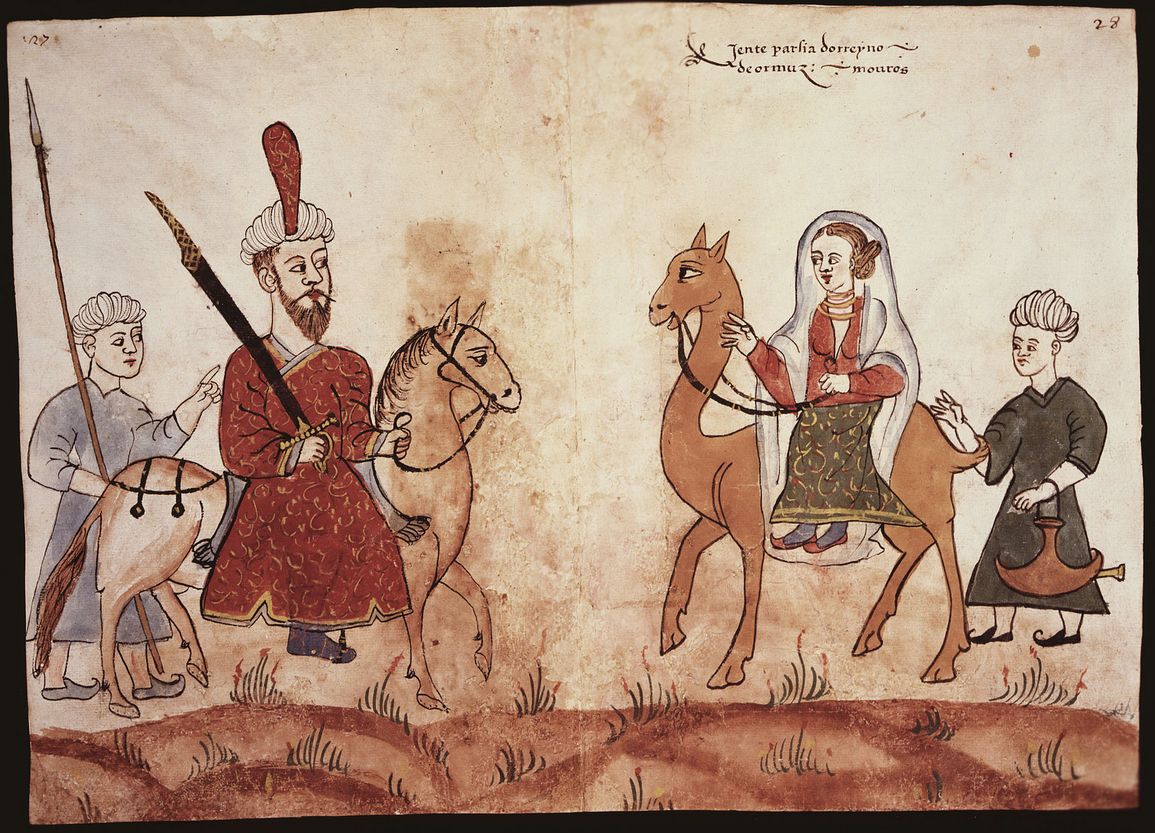 27
28
Jente parsia do rreyno
de ormuz: mouros